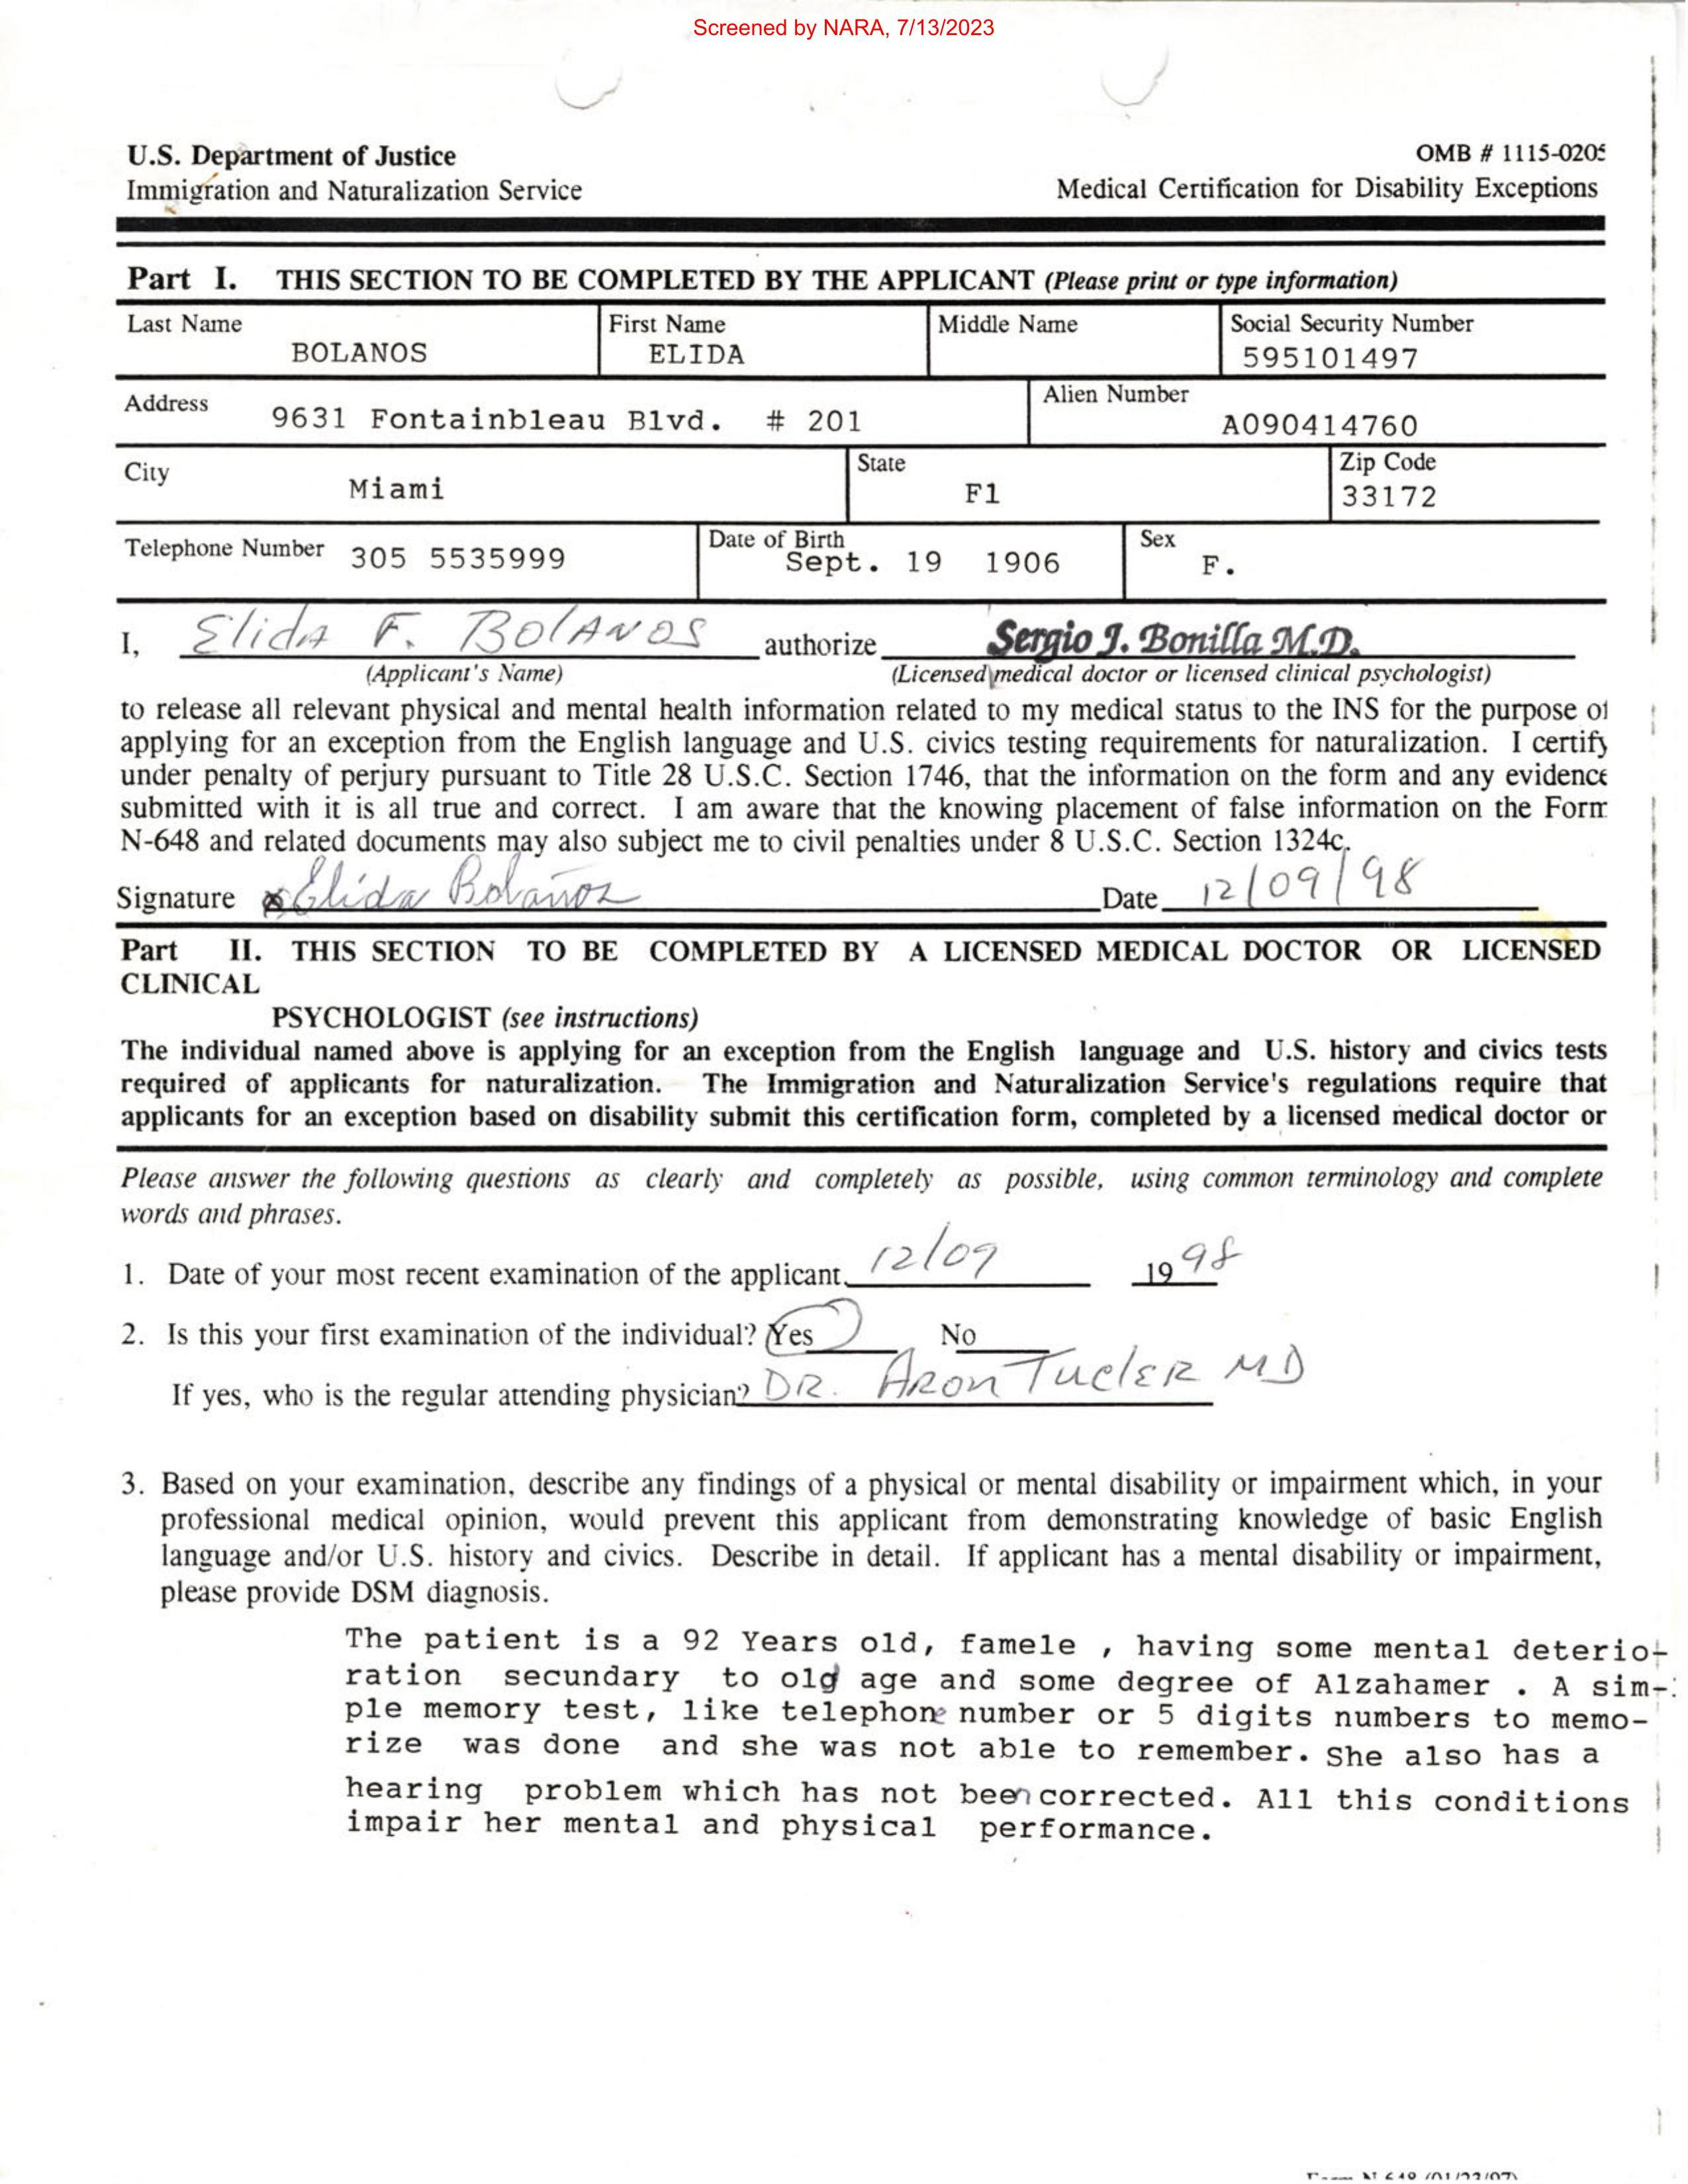 Screened by NARA, 7/13/2023
U.S. Department of Justice
OMB # 1115-0205
Immigration and Naturalization Service
Medical Certification for Disability Exceptions
Part I. THIS SECTION TO BE COMPLETED BY THE APPLICANT (Please print or type information)
Last Name First Name Middle Name Social Security Number
BOLANOS ELIDA 595101497
Address Alien Number
9631 Fontainbleau Blvd. # 201 A090414760
City State Zip Code
Miami Fl 33172
Telephone Number 305 5535999 Date of Birth Sept. 19 1906 Sex F.
I, Elida F. Bolanos authorize Sergio J. Bonilla M.D.
(Applicant's Name) (Licensed medical doctor or licensed clinical psychologist)
to release all relevant physical and mental health information related to my medical status to the INS for the purpose of
applying for an exception from the English language and U.S. civics testing requirements for naturalization. I certify
under penalty of perjury pursuant to Title 28 U.S.C. Section 1746, that the information on the form and any evidence
submitted with it is all true and correct. I am aware that the knowing placement of false information on the Form
N-648 and related documents may also subject me to civil penalties under 8 U.S.C. Section 1324c.
Signature x Elida Bolaños Date 12/09/98
Part II. THIS SECTION TO BE COMPLETED BY A LICENSED MEDICAL DOCTOR OR LICENSED
CLINICAL
PSYCHOLOGIST (see instructions)
The individual named above is applying for an exception from the English language and U.S. history and civics tests
required of applicants for naturalization. The Immigration and Naturalization Service's regulations require that
applicants for an exception based on disability submit this certification form, completed by a licensed medical doctor or
Please answer the following questions as clearly and completely as possible, using common terminology and complete
words and phrases.
1. Date of your most recent examination of the applicant. 12/09 19 98
2. Is this your first examination of the individual? Yes No
If yes, who is the regular attending physician? DR. ARON TUCLER MD
3. Based on your examination, describe any findings of a physical or mental disability or impairment which, in your
professional medical opinion, would prevent this applicant from demonstrating knowledge of basic English
language and/or U.S. history and civics. Describe in detail. If applicant has a mental disability or impairment,
please provide DSM diagnosis.
The patient is a 92 Years old, famele , having some mental deterio-
ration secundary to old age and some degree of Alzahamer . A sim-
ple memory test, like telephone number or 5 digits numbers to memo-
rize was done and she was not able to remember. She also has a
hearing problem which has not been corrected. All this conditions
impair her mental and physical performance.